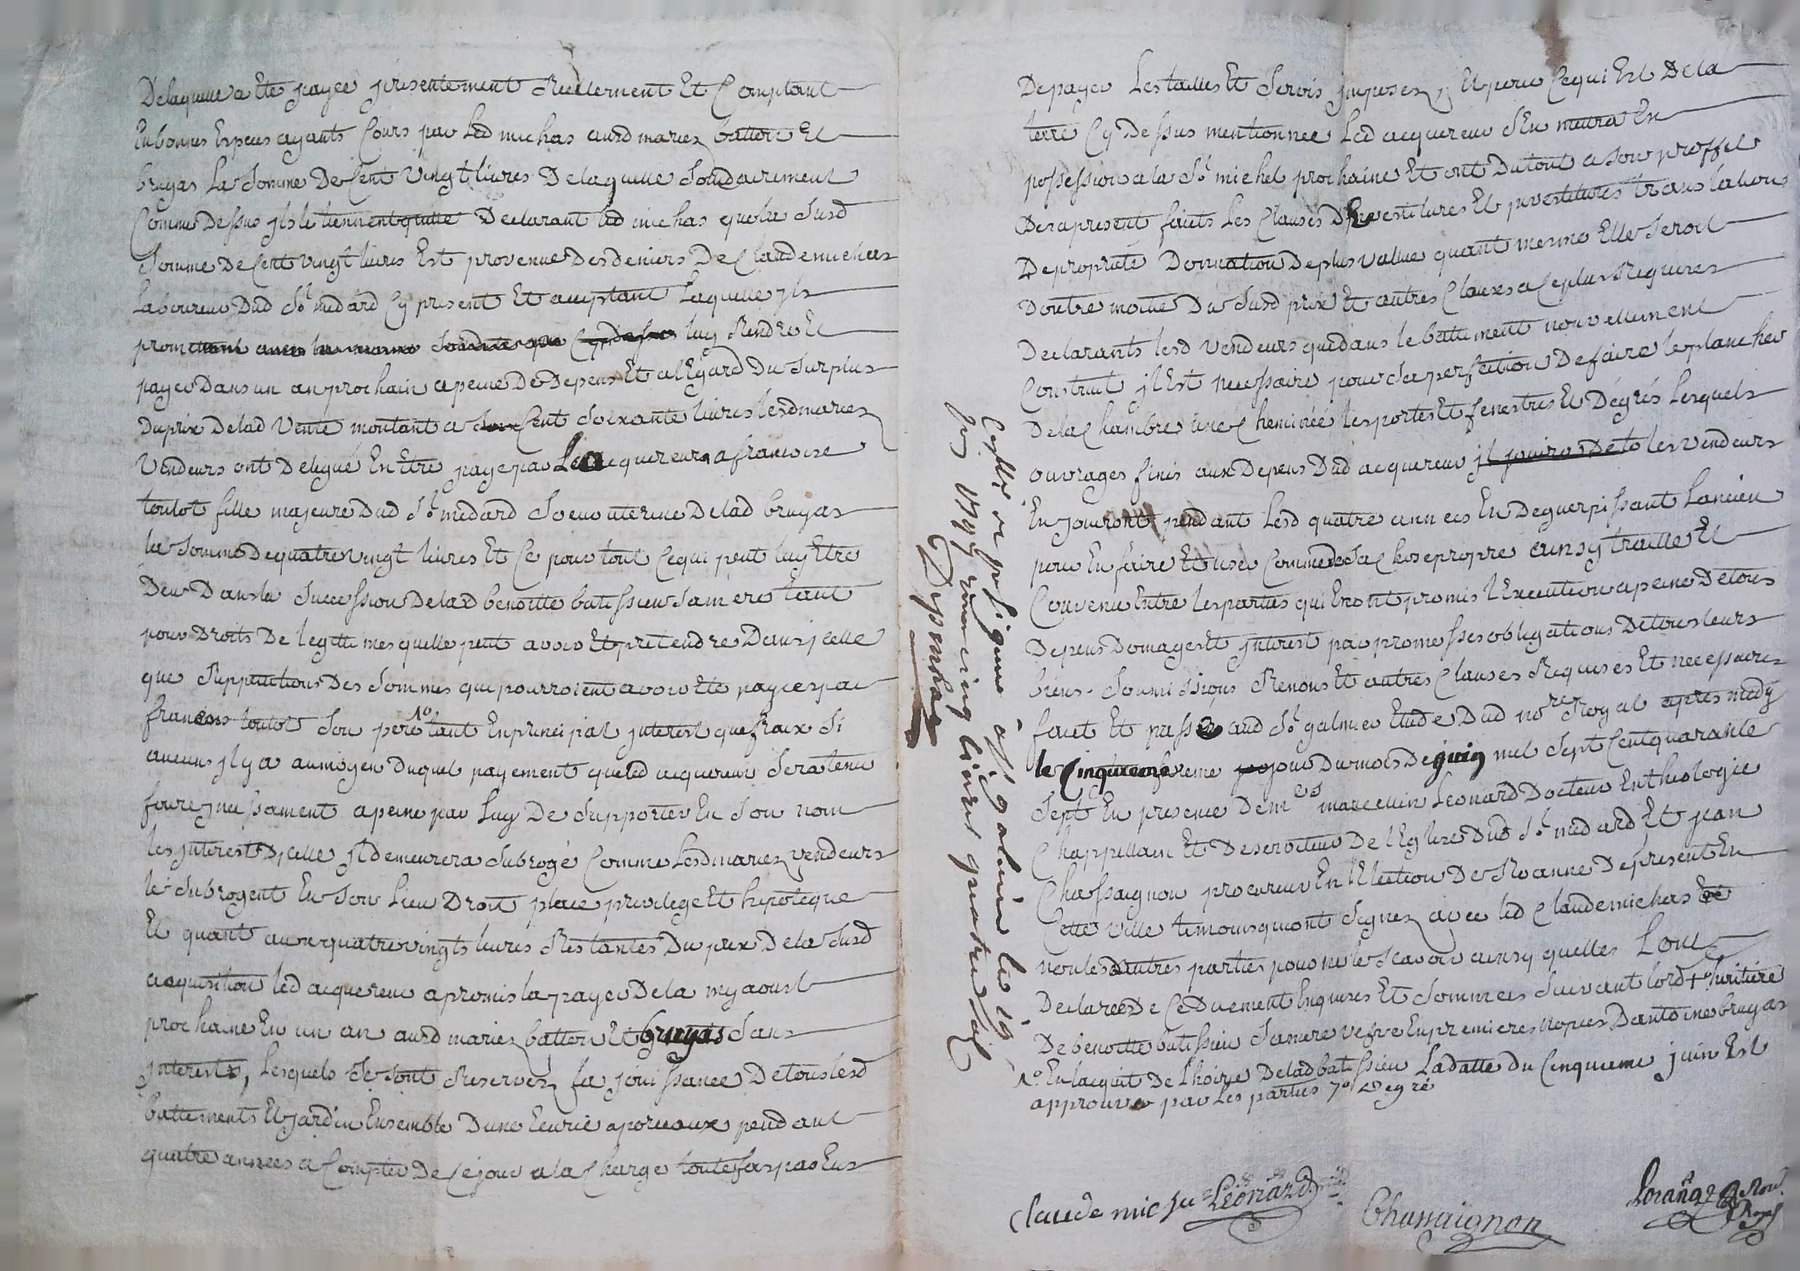 Delaquelle a ete payée presentement Reelement Et Comptant
En bonnes Especes ayants Cours par Led michas ausd mariez batton Et
bruyas La Somme De Cent Vingt livres De laquelle Solidairement
Comme Dessus jls le tiennent quitte Declarant led michas que la Susd
Somme De Cent vingt livres Est provenue Des deniers De Claude michas
Laboureur Dud St medard Cy present Et acceptant Laquelle jls
luy Rendre Et
payer Dans un an prochain a peine De Depens Et a l'Egard Du Surplus
Du prix De lad Vente montant a Cent Soixante livres lesd mariez
Vendeurs ont Delegué En Etre payé par Led acquereur a francoise
toulot fille majeure Dud St medard Soeur uterine De lad bruyas
la Somme De quatre vingt livres Et Ce pour tout Ce qui peut luy Etre
Deu Dans la Succession De lad benoitte batissieu Sa mere tant
pour Droits De legitimes quelle peut avoir Et pretendre Dans jcelle
que Repetitions Des Sommes qui pourroient avoir Eté payées par
francois toulot Son pere 1o tant En principal jnterest que fraix Si
aucuns jl y a au moyen Duquel payement que led acquereur Sera tenu
faire jncessament a peine par Luy De Supporter En Son nom
les jnterests D'jcelle jl demeurera Subrogé Comme Lesd mariez vendeurs
le Subrogent En Son Lieu Droit place privilege Et hipoteque
Et quant aux quatre vingts livres Restantes Du prix De la Susd
acquisition led acquereur a promis la payer De la my aoust
prochaine En un an ausd mariez batton Et bruyas Sans
jnterests, Lesquels Se Sont Reservez La jouissance De tous lesd
battiments Et jardin Ensemble D'une Ecurie a porceaux pendant
quatre années a Compter De Ce jour a la Charge toutefois par Eux
Controllé
a St galmier les 19
juin 1747 cinq livres quatre
De payer Les tailles Et Servis jmposez, Et pour Ce qui Est De la
terre Cy Dessus mentionnée Led acquereur S'En mettra En
possession a la St michel prochaine Et ont Du tout a Son proffit
Des a present faits Les Clauses D'jnvestitures Et translations
De proprieté Donnation De plus value quant mesme Elle Seroit
D'outre moitié Du Susd prix Et autres Clauses a Ce plus Requises
Declarants lesd Vendeurs que dans le battiment nouvellement
Construit jl Est necessaire pour Sa perfection De faire le plancher
De la Chambre une Cheminée les portes Et fenestres Et Dégrés Lesquels
ouvrages finis aux Depens Dud acquereur les Vendeurs
En jouront pendant Lesd quatre années En Deguerpissant Lancien
pour En faire Et user Comme De Sa Chose propre ainsy traitté Et
Convenu Entre les parties qui En ont promis l'Execution a peine De tous
Depens Domages Et jnterest par promesses obligations De tous leurs
biens Soumissions Renons Et autres Clauses Requises Et necessaires
fait Et passé aud St galmier Etude Dud no.re Royal apres midy
le Cinquieme jour Du mois De juin mil Sept Cent quarante
Sept En presence De m.es marcellin Leonard Docteur En theologie
Chappellain Et Deserviteur De l'Eglise Dud St medard Et jean
Chassaignon procureur En l'Election De Roanne De present En
Cette Ville temoins qui ont Signez avec led Claude michas
non les autres parties pour ne le Scavoir ainsy quelles Lont
Declarée De Ce Duement Enquises Et Sommées Suivant lord + heritiere
De benoitte batissieu Sa mere vefve En premieres nopces D'antoine bruyas
1o En lacquit De l'hoirie De lad batissieu La datte du Cinquieme juin Est
approuvé par Les parties
Claude michas Leonard Chassaignon Lorange no.re Royal